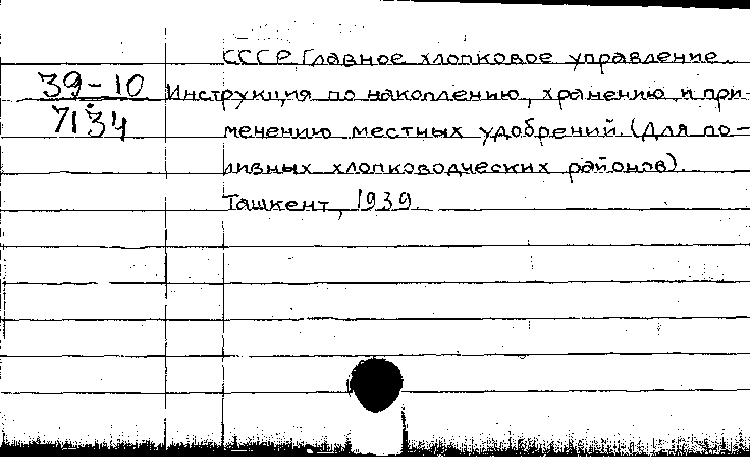 СССР. Главное хлопковое управление.
39-10
7134
Инструкция по накоплению, хранению и при-
менению местных удобрений. (Для по-
ливных хлопководческих районов).
Ташкент, 1939.